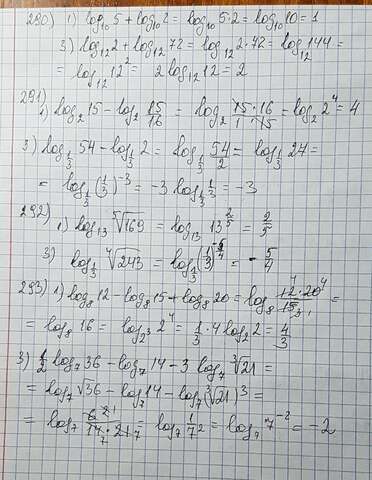 290) 1) log₁₀ 5 + log₁₀ 2 = log₁₀ 5·2 = log₁₀ 10 = 1
3) log₁₂ 2 + log₁₂ 72 = log₁₂ 2·72 = log₁₂ 144 =
= log₁₂ 12² = 2 log₁₂ 12 = 2
291)
1) log₂ 15 - log₂ 15/16 = log₂ 15·16/1·15 = log₂ 2⁴ = 4
3) log₁/₃ 54 - log₁/₃ 2 = log₁/₃ 54/2 = log₁/₃ 27 =
= log₁/₃ (1/3)⁻³ = -3 log₁/₃ 1/3 = -3
292) 1) log₁₃ ⁵√169 = log₁₃ 13^(2/5) = 2/5
3) log₁/₃ ⁴√243 = log₁/₃ (1/3)^(-5/4) = -5/4
293) 1) log₈ 12 - log₈ 15 + log₈ 20 = log₈ 12·20/15 =
= log₈ 16 = log₂³ 2⁴ = 1/3 · 4 log₂ 2 = 4/3
3) 1/2 log₇ 36 - log₇ 14 - 3 log₇ ³√21 =
= log₇ √36 - log₇ 14 - log₇ (³√21)³ =
= log₇ 6/14·21 = log₇ 1/7² = log₇ 7⁻² = -2